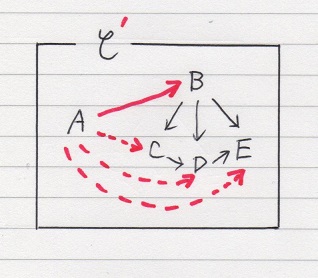 𝒞'
B
A
C D E